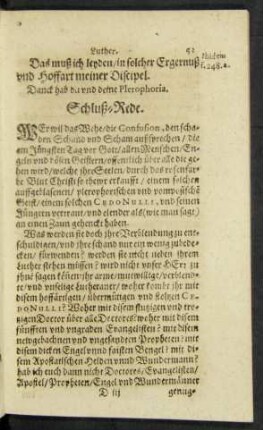 Luther.
Das muß ich leyden/in solcher Ergernuß
vnd Hoffart meiner Discipel.
Danck hab du vnd deine Plerophoria.
Schluß-Rede.
WEr wil das Wehe/die Confusion, den scha-
den Schand vnd Scham außsprechen / die
am Jüngsten Tag vor Gott/allen Menschen/En-
geln vnd bösen Geistern/offentlich über alle die ge-
hen wird/welche jhre Seelen/durch das rosenfar-
be Blut Christi so thewr erkaufft / einem solchen
auffgeblasenen/ plerophorischen vnd
Geist / einem solchen CRDONULLI, vnd seinen
Jüngern vertraut/vnd elender als (wie man sagt)
an einen Zaun gehenckt haben.
Was werden sie doch ihre Verblendung zu ent-
schuldigen/vnd jhre schand nur ein wenig zubede-
cken/ fürwenden? werden sie nicht neben ihrem
Luther stehen müssen? wird nicht vnser HErr zu
jhn sagen können: jhr arme muthwillige/verblende-
te/vnd vnselige Lutheraner/ woher kombt jhr mit
disem hoffärtigen/ übermütigen vnd stoltzen CR-
DONULLI? Woher mit disem stutzigen vnd tro-
tzigen Doctor über alle Doctores? woher mit disem
fünfften vnd vngraden Evangelisten? mit disem
newgebachnen vnd vngesandten Propheten: mit
disem dicken Engel vnnd faisten Bengel? mit di-
sem Apostatischen Helden vnnd Wundermann?
hab ich euch dann nicht Doctores/Evangelisten/
Apostel/ Propheten/Engel vnd Wundermänner
D iij
genug-